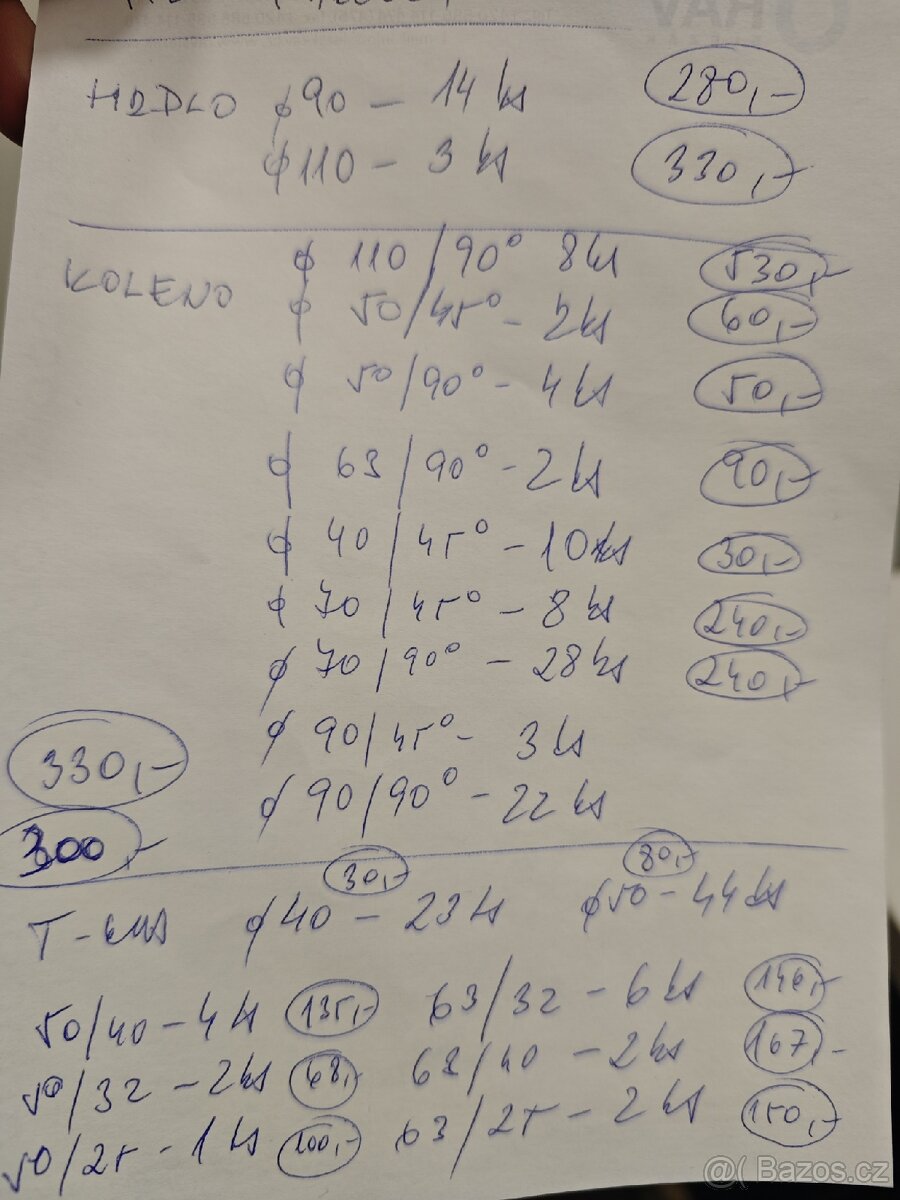 HRDLO ϕ90 - 14 ks 280,-
ϕ110 - 3 ks 330,-
KOLENO ϕ 110/90° 8ks 530,-
ϕ 50/45° - 2ks 60,-
ϕ 50/90° - 4ks 50,-
ϕ 63/90° - 2ks 90,-
ϕ 40/45° - 10ks 30,-
ϕ 70/45° - 8 ks 240,-
ϕ 70/90° - 28ks 240,-
330,- ϕ 90/45° - 3 ks
300,- ϕ 90/90° - 22 ks
30,- 80,-
T-kus ϕ40 - 23 ks ϕ50 - 44ks
50/40 - 4ks 135,- 63/32 - 6 ks 146,-
50/32 - 2ks 68,- 63/40 - 2ks 167,-
50/25 - 1ks 100,- 63/25 - 2 ks 150,-
@( Bazos.cz